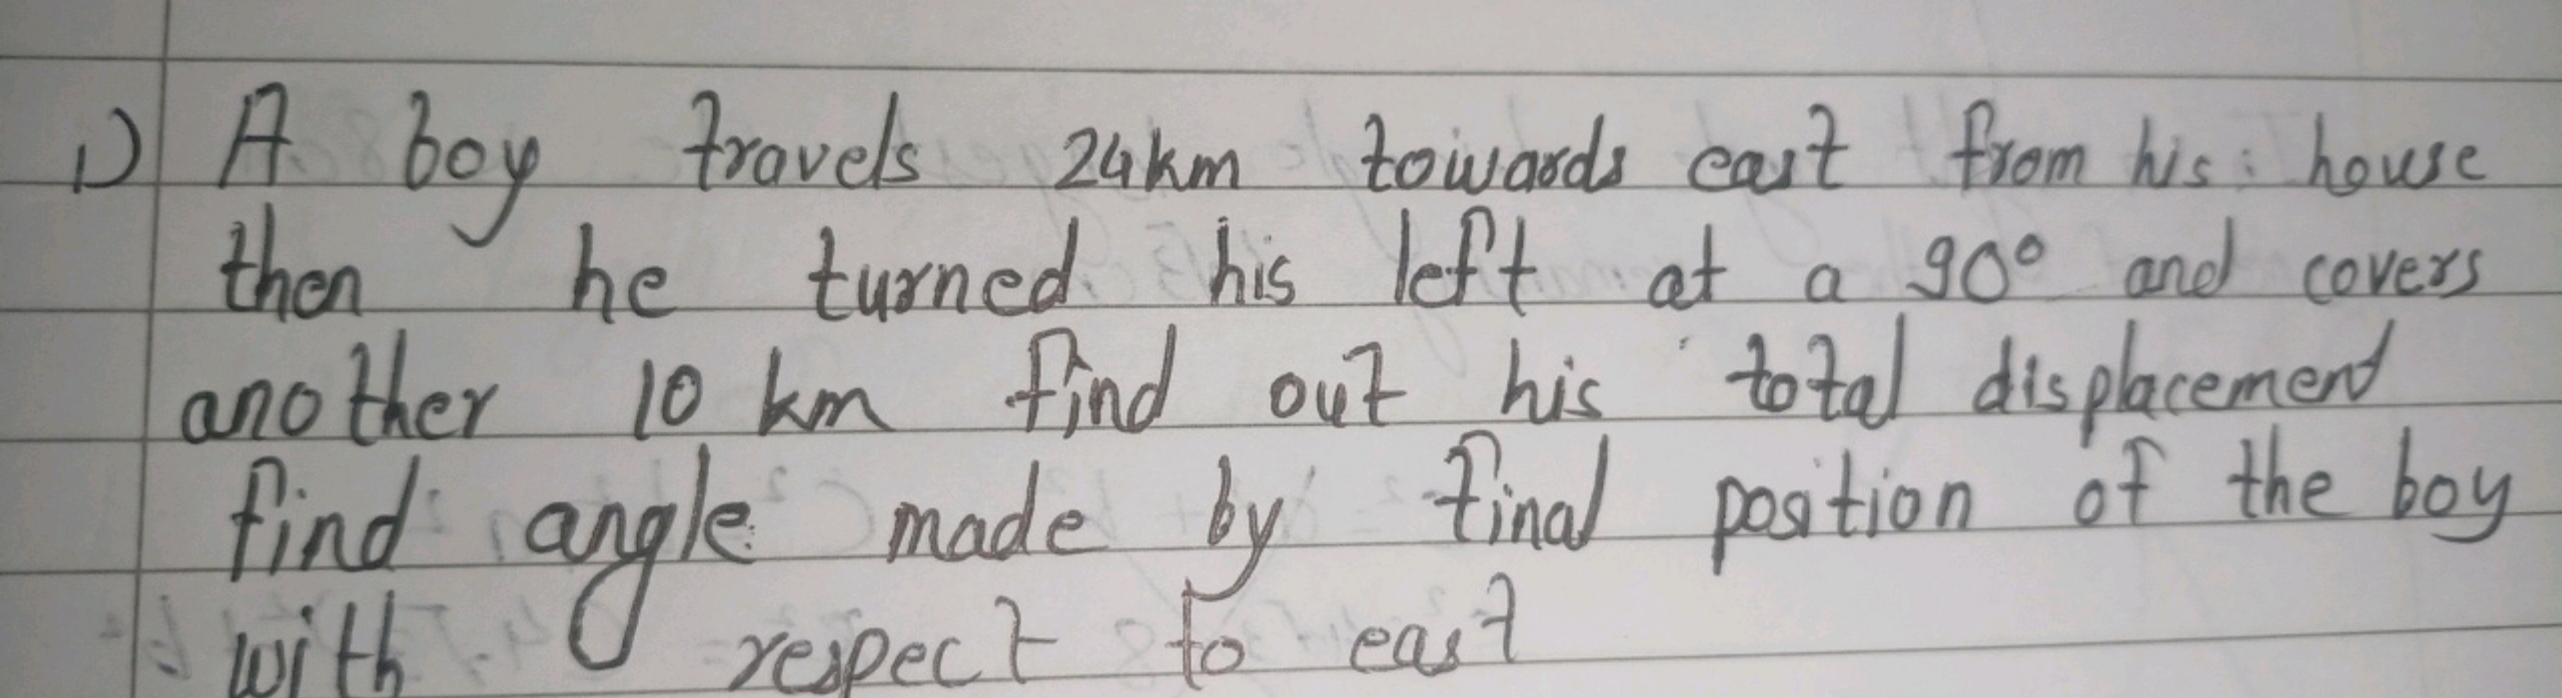 1) A boy travels 24km towards east from his house
then he turned his left at a 90° and covers
another 10 km find out his total displacement
find angle made by final position of the boy
with respect to east